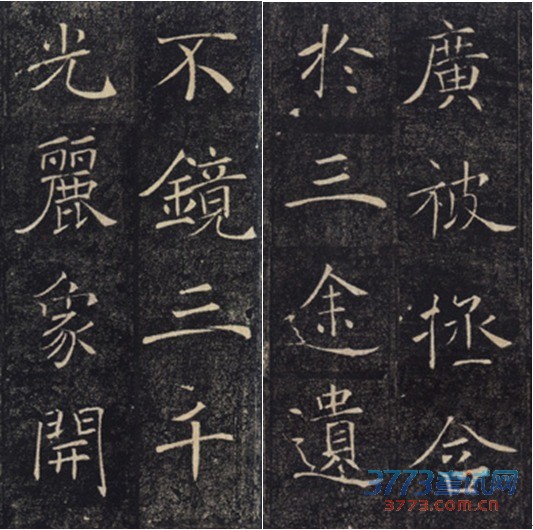 廣被拯含
於三途遺
不鏡三千
光麗象開
3773考试网
3773.com.cn